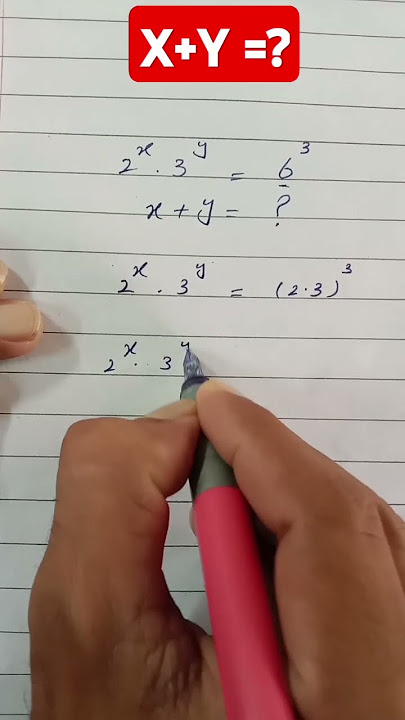 X+Y =?
2^x · 3^y = 6^3
x + y = ?
2^x · 3^y = (2·3)^3
2^x · 3^y